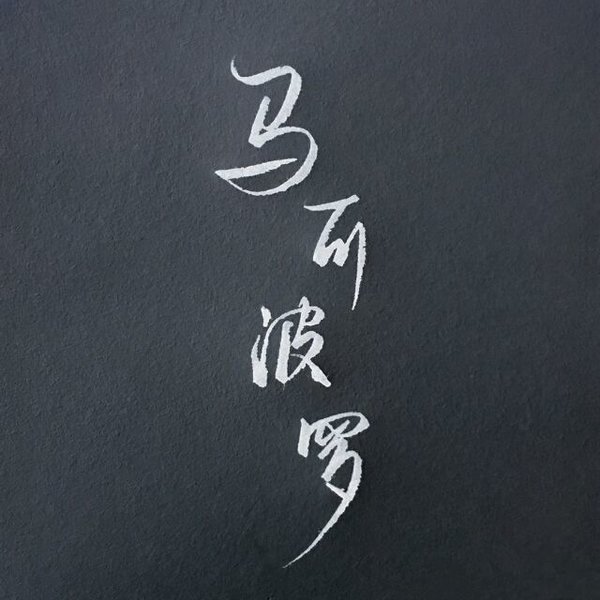 马可波罗